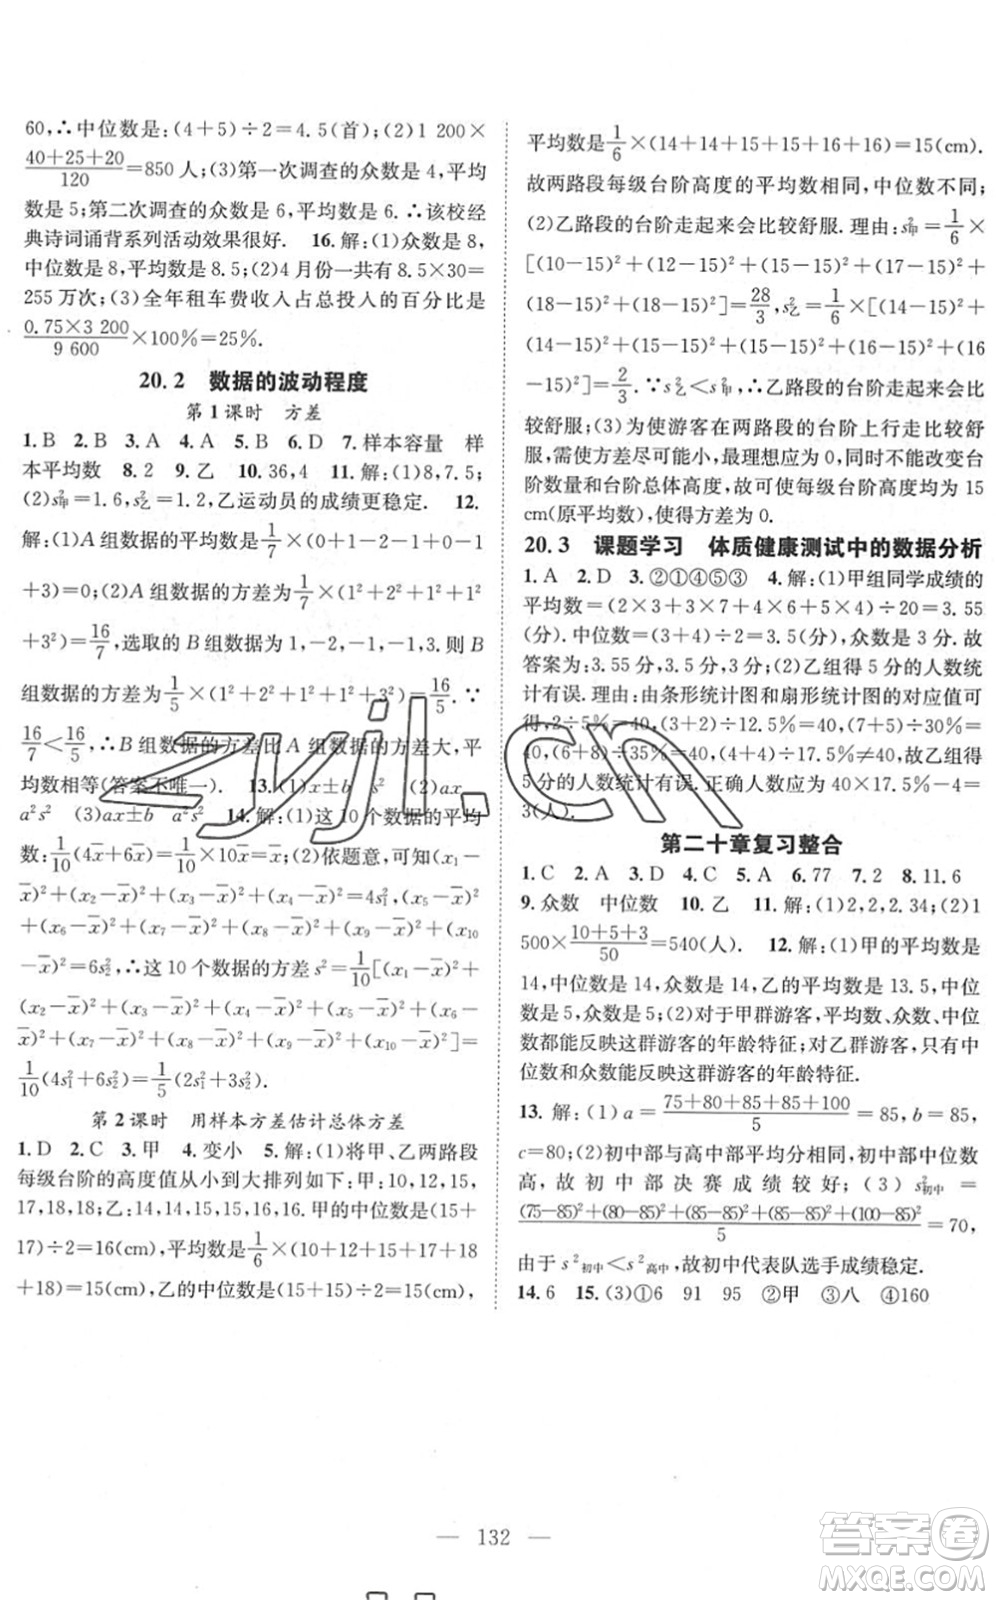 60,∴中位数是:(4+5)÷2=4.5(首);(2)1 200×
(40+25+20)/120=850 人;(3)第一次调查的众数是 4,平均
数是 5;第二次调查的众数是 6,平均数是 6.∴该校经
典诗词诵背系列活动效果很好. 16.解:(1)众数是 8,
中位数是 8,平均数是 8.5;(2)4 月份一共有 8.5×30=
255 万次;(3)全年租车费收入占总投入的百分比是
(0.75×3 200)/(9 600)×100%=25%.
20.2 数据的波动程度
第 1 课时 方差
1.B 2.B 3.A 4.A 5.B 6.D 7.样本容量 样
本平均数 8.2 9.乙 10.36,4 11.解:(1)8,7.5;
(2)s²甲=1.6,s²乙=1.2,乙运动员的成绩更稳定. 12.
解:(1)A 组数据的平均数是1/7×(0+1-2-1+0-1
+3)=0;(2)A 组数据的方差为1/7×(1²+2²+1²+1²
+3²)=16/7,选取的 B 组数据为 1,-2,-1,-1,3.则 B
组数据的方差为1/5×(1²+2²+1²+1²+3²)=16/5.∵
16/7<16/5,∴B 组数据的方差比 A 组数据的方差大,平
均数相等(答案不唯一). 13.(1)x±b s² (2)ax
a²s² (3)ax±b a²s² 14.解:(1)这 10 个数据的平均
数:1/10(4x̄+6x̄)=1/10×10x̄=x̄;(2)依题意,可得(x₁-
x̄)²+(x₂-x̄)²+(x₃-x̄)²+(x₄-x̄)²=4s₁²,(x₅-x̄)²
+(x₆-x̄)²+(x₇-x̄)²+(x₈-x̄)²+(x₉-x̄)²+(x₁₀
-x̄)²=6s₂²,∴这 10 个数据的方差 s²=1/10[(x₁-x̄)²+
(x₂-x̄)²+(x₃-x̄)²+(x₄-x̄)²+(x₅-x̄)²+(x₆-
x̄)²+(x₇-x̄)²+(x₈-x̄)²+(x₉-x̄)²+(x₁₀-x̄)²]=
1/10(4s₁²+6s₂²)=1/5(2s₁²+3s₂²).
第 2 课时 用样本方差估计总体方差
1.D 2.C 3.甲 4.变小 5.解:(1)将甲、乙两路段
每级台阶的高度值从小到大排列如下:甲:10,12,15,
17,18,18;乙:14,14,15,15,16,16.甲的中位数是(15+
17)÷2=16(cm),平均数是1/6×(10+12+15+17+18
+18)=15(cm),乙的中位数是(15+15)÷2=15(cm),
平均数是1/6×(14+14+15+15+16+16)=15(cm).
故两路段每级台阶高度的平均数相同,中位数不同;
(2)乙路段的台阶走起来会比较舒服.理由:s²甲=1/6
×[(10-15)²+(12-15)²+(15-15)²+(17-15)²+
(18-15)²+(18-15)²]=28/3,s²乙=1/6×[(14-15)²+
(14-15)²+(15-15)²+(15-15)²+(16-15)²+(16
-15)²]=2/3.∵s²乙<s²甲,∴乙路段的台阶走起来会比
较舒服;(3)为使游客在两路段的台阶上行走比较舒
服,需使方差尽可能小,最理想应为 0,同时不能改变台
阶数量和台阶总体高度,故可使每级台阶高度均为 15
cm(原平均数),使得方差为 0.
20.3 课题学习 体质健康测试中的数据分析
1.A 2.D 3.②①④⑤③ 4.解:(1)甲组同学成绩的
平均数=(2×3+3×7+4×6+5×4)÷20=3.55
(分).中位数=(3+4)÷2=3.5(分),众数是 3 分.故
答案为:3.55 分,3.5 分,3 分;(2)乙组得 5 分的人数统
计有误.理由:由条形统计图和扇形统计图的对应值可
得,2÷5%=40,(3+2)÷12.5%=40,(7+5)÷30%=
40,(6+8)÷35%=40,(4+4)÷17.5%≠40,故乙组得
5 分的人数统计有误.正确人数应为 40×17.5%-4=
3(人).
第二十章复习整合
1.C 2.A 3.D 4.C 5.A 6.77 7.2 8.11.6
9.众数 中位数 10.乙 11.解:(1)2,2,2.34;(2)1
500×(10+5+3)/50=540(人). 12.解:(1)甲的平均数是
14,中位数是 14,众数是 14,乙的平均数是 13.5,中位
数是 5,众数是 5;(2)对于甲群游客,平均数、众数、中位
数都能反映这群游客的年龄特征;对乙群游客,只有中
位数和众数能反映这群游客的年龄特征.
13.解:(1)a=(75+80+85+85+100)/5=85,b=85,
c=80;(2)初中部与高中部平均分相同,初中部中位数
高,故初中部决赛成绩较好;(3)s²初中=
((75-85)²+(80-85)²+(85-85)²+(85-85)²+(100-85)²)/5=70,
由于 s²初中<s²高中,故初中代表队选手成绩稳定.
14.6 15.(3)①6 91 95 ②甲 ③八 ④160
132
zyjl.cn
答案圈
MXQE.COM